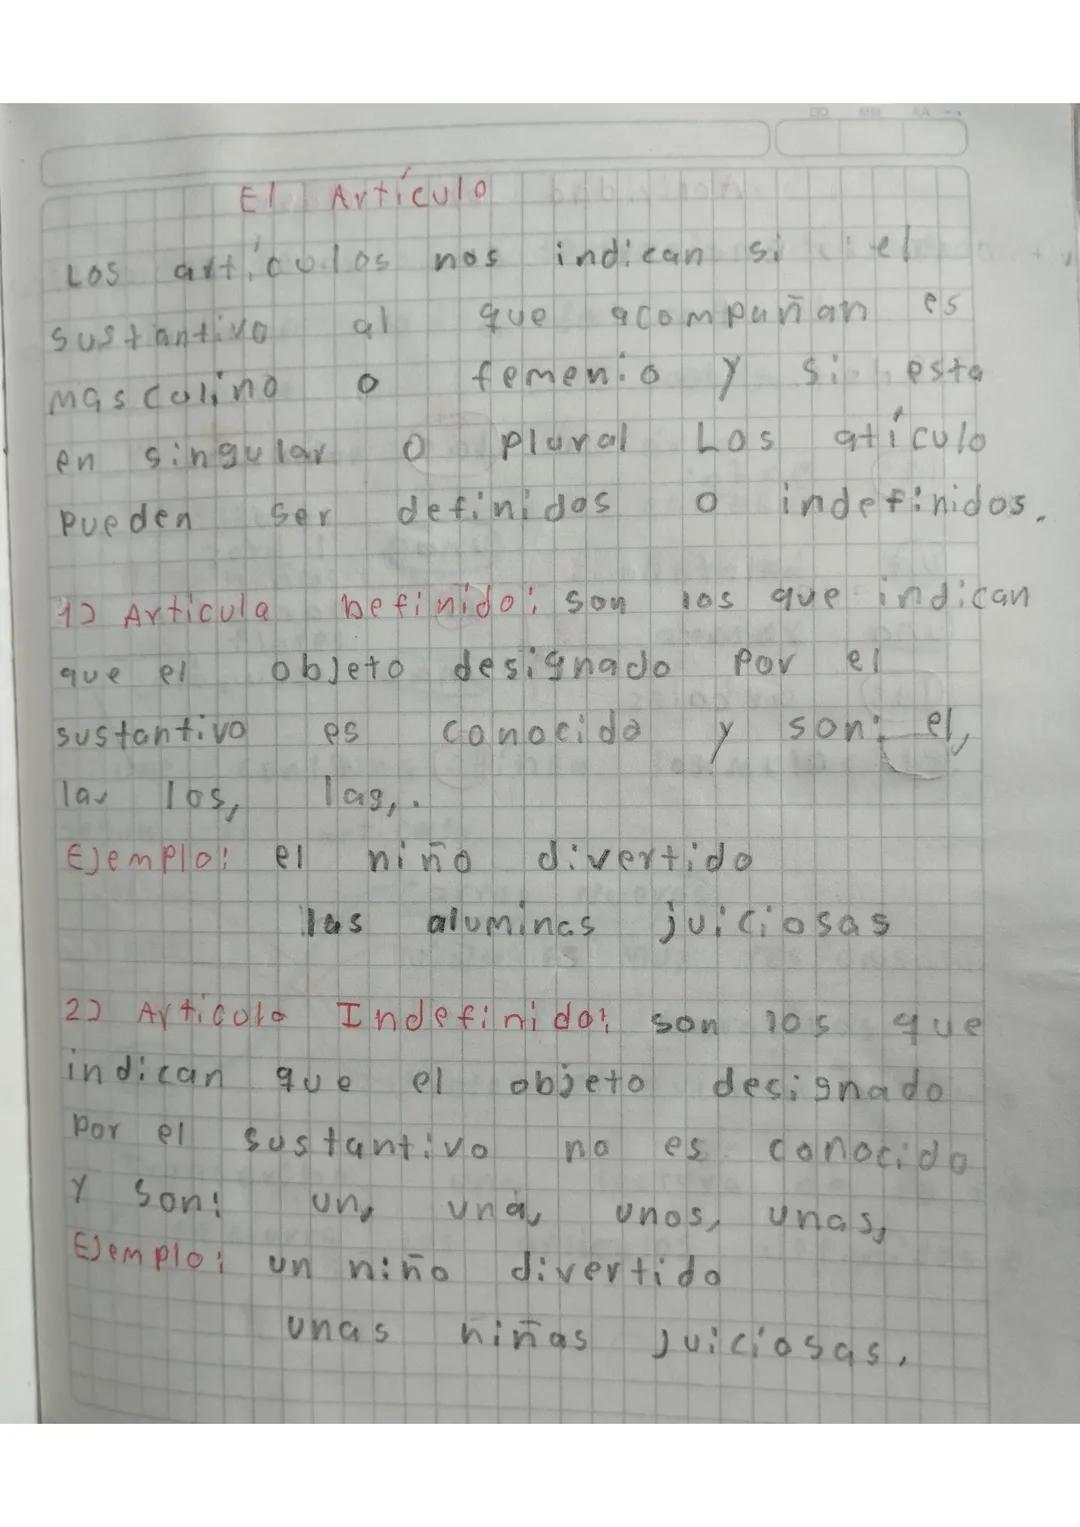 El Artículo
Los artículos nos indican si el
sustantivo al que acompañan es
masculino o femenio y si esta
en singular o plural Los atículo
pueden ser definidos o indefinidos.
1) Articula Definido: son los que indican
que el objeto designado por el
sustantivo es conocido y son: el,
la, los, las,.
Ejemplo: el niño divertido
las aluminas juiciosas
2) Articulo Indefinido: son los que
indican que el objeto designado
por el sustantivo no es conocido
y son: un, una, unos, unas,
Ejemplo: un niño divertido
unas niñas juiciosas.